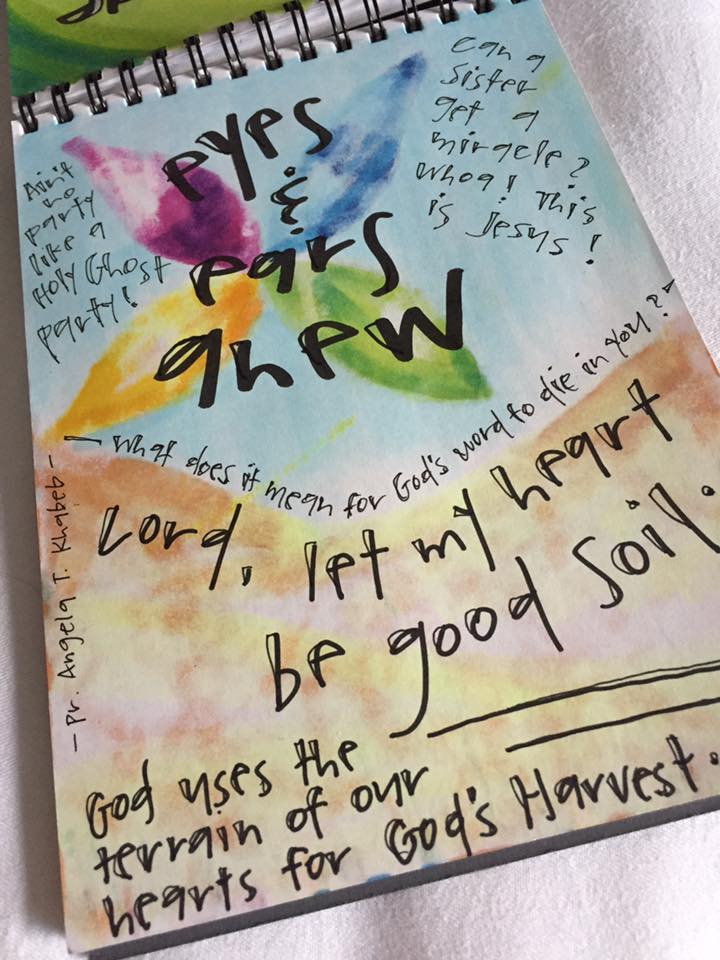 eyes
&
ears
anew
Ain't
no
party
like a
Holy Ghost
party!
Can a
Sister
get a
miracle?
Whoa! This
is Jesus!
- What does it mean for God's word to die in you? -
- Pr. Angela T. Khabeb -
Lord, let my heart
be good soil.
God uses the
terrain of our
hearts for God's Harvest.